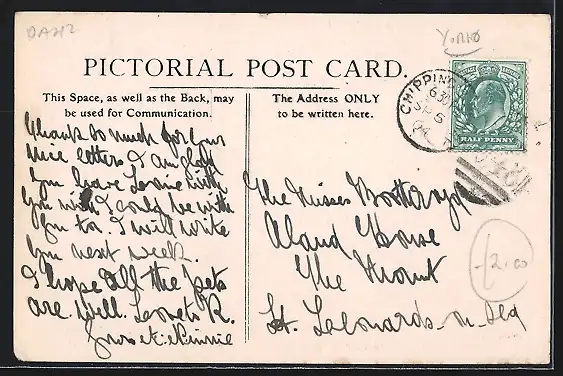 DA212
YORKS
PICTORIAL POST CARD.
This Space, as well as the Back, may
be used for Communication.
The Address ONLY
to be written here.
CHIPPIN
630
SP 5
04
HALF PENNY
Thanks so much for your
nice letters I am glad
you have with
you wish I could be with
you too. I will write
you next week.
I hope all the pets
are well. Love to R.
The Misses
House
The Mount
St. Leonards-on-Sea
2.00